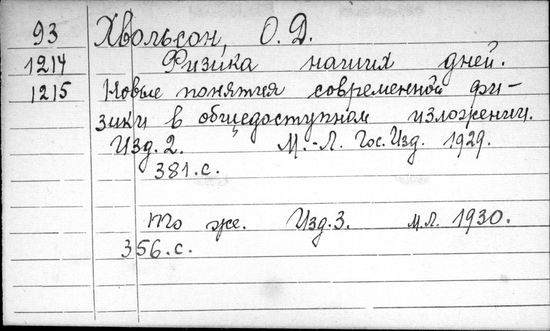 93 Хвольсон, О. Д.
1214 Физика наших дней.
1215 Новые понятия современной фи-
зики в общедоступном изложении.
Изд. 2. М.-Л. Гос. Изд. 1929.
381.с.
То же. Изд. 3. М.Л. 1930.
356.с.